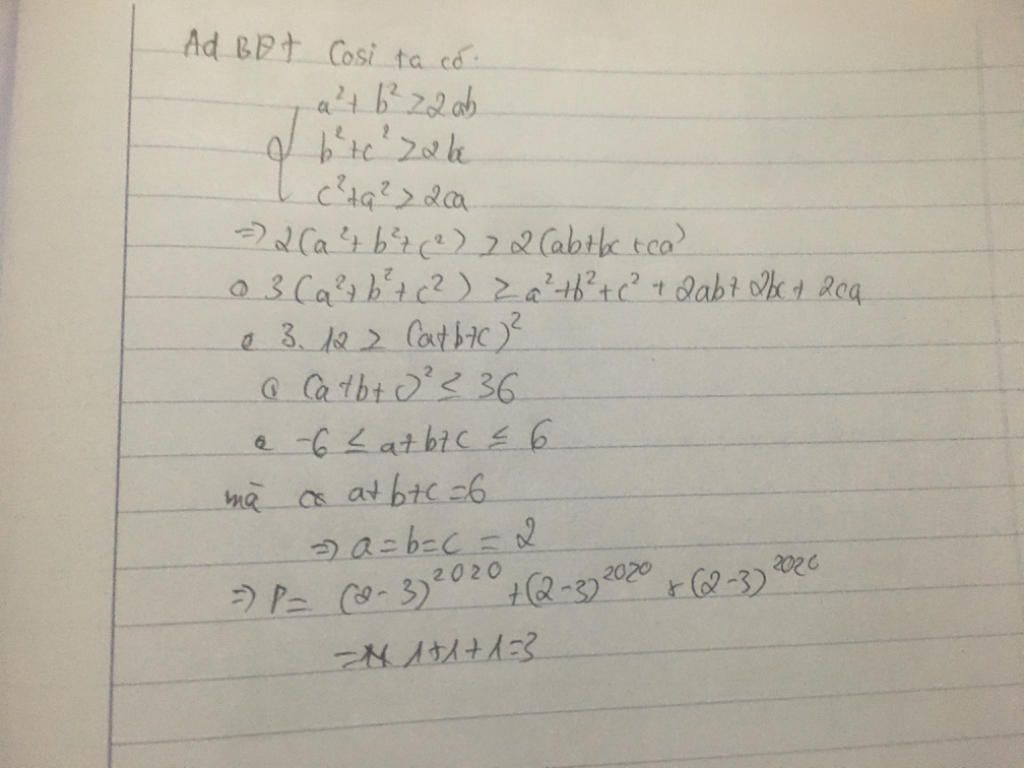 Ad BĐT Cosi ta có:
a² + b² ≥ 2ab
b² + c² ≥ 2bc
c² + a² ≥ 2ca
=> 2(a² + b² + c²) ≥ 2(ab + bc + ca)
3(a² + b² + c²) ≥ a² + b² + c² + 2ab + 2bc + 2ca
3.12 ≥ (a+b+c)²
(a+b+c)² ≤ 36
-6 ≤ a+b+c ≤ 6
mà a+b+c = 6
=> a = b = c = 2
=> P = (2-3)²⁰²⁰ + (2-3)²⁰²⁰ + (2-3)²⁰²⁰
= 1+1+1=3